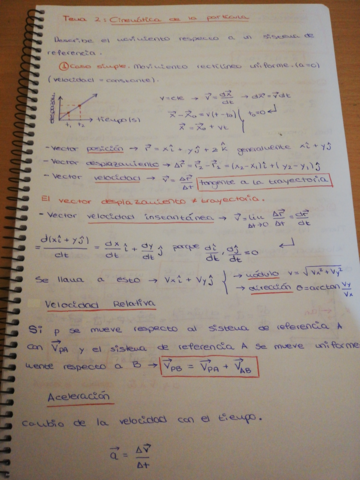 Tema 2: Cinemática de la partícula
Describe el movimiento respecto a un sistema de
referencia.
① Caso simple: Movimiento rectilíneo uniforme (a=0)
(velocidad = constante).
v=cte → v⃗ = dx⃗/dt → dx⃗ = v⃗ dt
t₁ t₂ tiempo(s)
- vector posición → r⃗ = xi + yj + zk generalmente xi + yj
- vector desplazamiento → Δr⃗ = r⃗₂ - r⃗₁ = (x₂-x₁)i + (y₂-y₁)j
- Vector velocidad → v⃗ = Δr⃗/Δt tangente a la trayectoria
El vector desplazamiento ≠ trayectoria.
- Vector velocidad instantánea → v⃗ = lim Δt→0 Δr⃗/Δt = dr⃗/dt
= d(xi + yj)/dt = dx/dt i + dy/dt j porque di/dt, dj/dt = 0
Se llama a esto → Vxi + Vyj → módulo v = √Vx² + Vy²
→ dirección θ = arctan Vy/Vx
Velocidad Relativa
Si p se mueve respecto al sistema de referencia A
con V⃗PA y el sistema de referencia A se mueve uniforme
mente respecto a B → V⃗PB = V⃗PA + V⃗AB
Aceleración
Cambio de la velocidad con el tiempo.
a⃗ = ΔV⃗/Δt